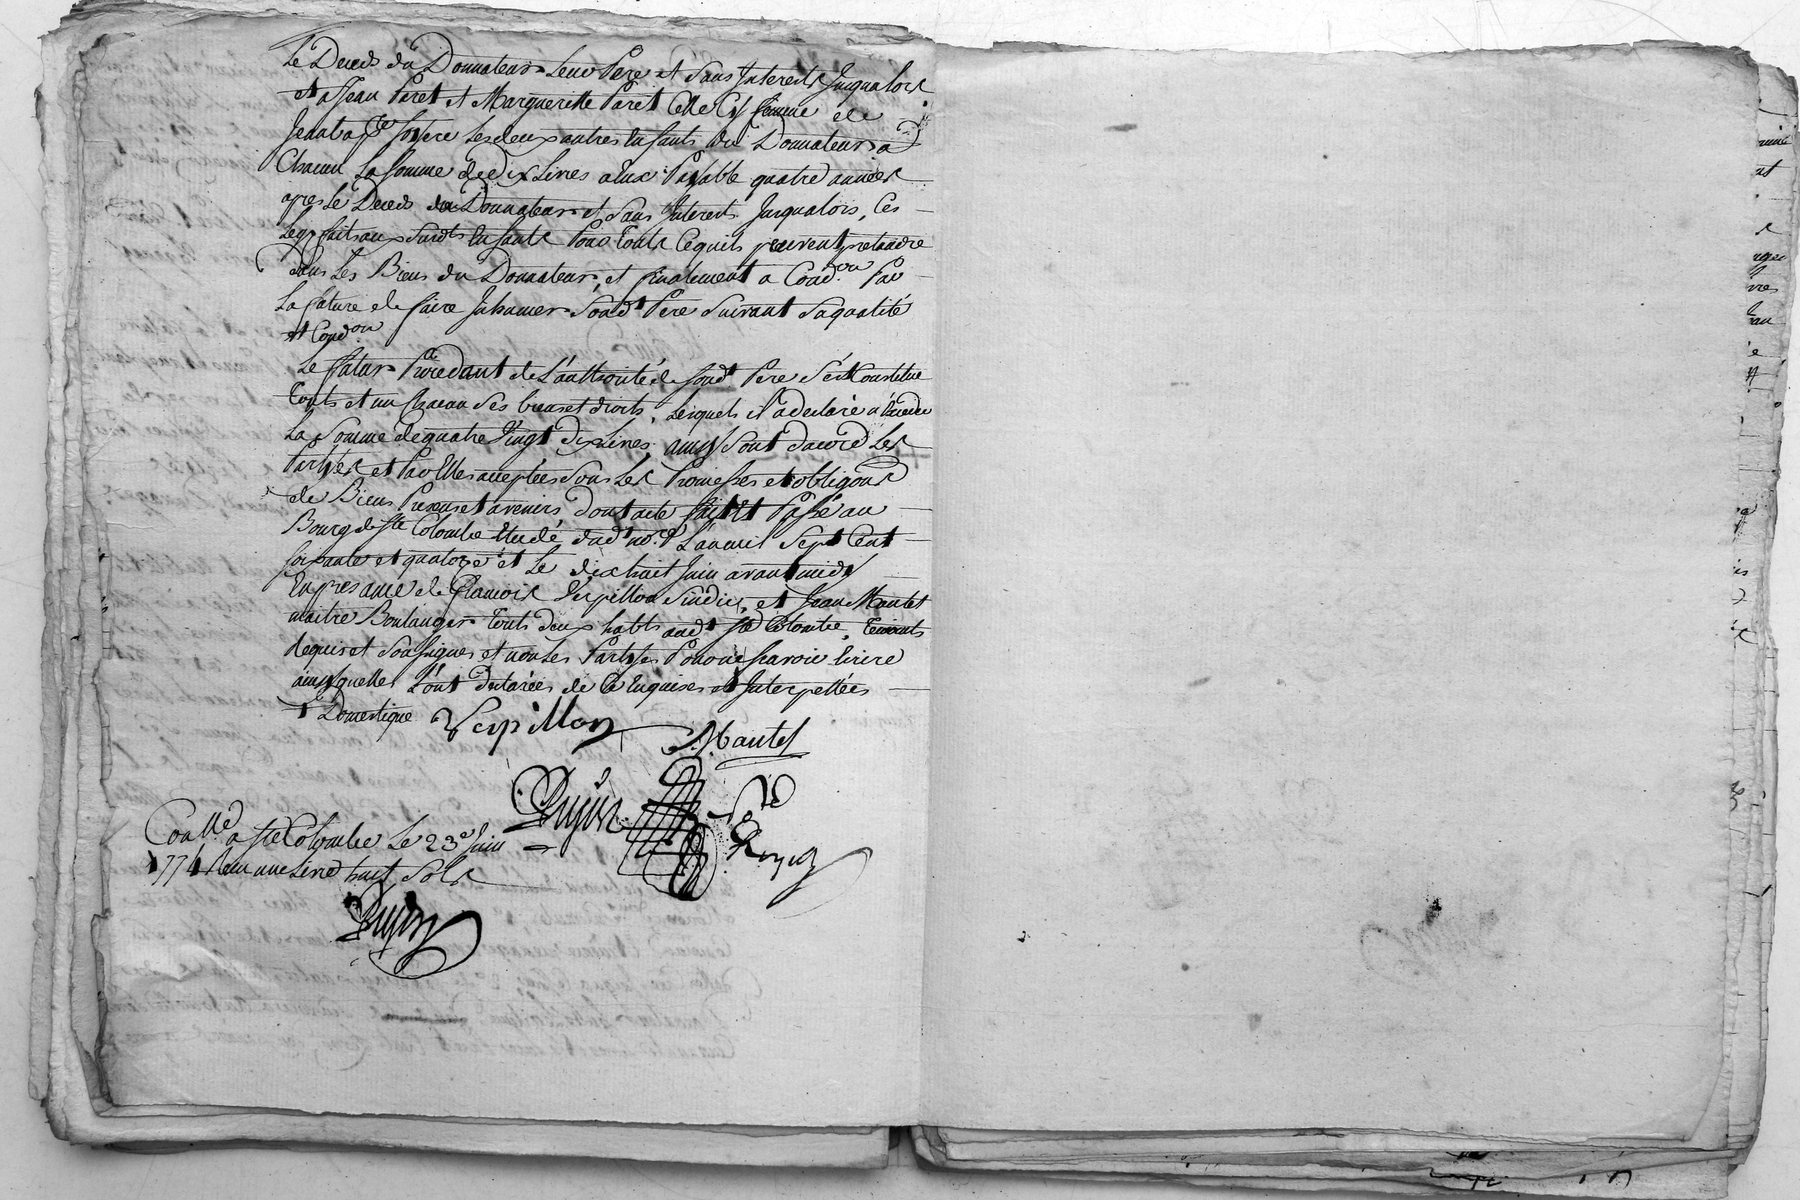 Le Deceds du Donnateur Leur Pere et Sans Interests Jusqualors
et a Jean Paret et Margueritte Paret Celle Cy femme de
Les deux autres Enfants du Donnateur a
Chacun La Somme de dix Livres a eux Payable quatre années
apres Le Deceds du Donnateur et Sans Interests Jusqualors, Ces
Legs faits aux Susdts Enfants Pour touts Cequils peuvent pretendre
dans Les Biens du Donnateur, et finalement a Condon Par
La future de faire Inhumer Sondt Pere Suivant Saqualité
et Condon
Le futur Procedant de L'authorité de Sondt Pere S'est Constitué
touts et un Chacun Ses biens et droits, Lesquels il a declaré n'Exceder
La Somme de quatre Vingt dix Livres, ainsy Sont dacord Les
Parties et Par Elles acceptées Sous Les Promesses et obligons
de Biens Presens et avenirs dont acte fait et Passé au
Bourg de Ste Colombe Etude dudt nore L'an mil Sept Cent
Soixante et quatorze et Le dixhuit Juin avant midy
En presance de francois Verpillon Sindicq, et Jean Mantel
maitre Boulanger touts deux habts audt Ste Colombe, temoins
Requis et Soussignes et non Les Parties Pour ne Scavoir Ecrire
ainsy quelles L'ont declarées de Ce Enquises et Interpellées
+ Domestique Verpillon
J. Mantel
Pujin
Conlle a Ste Colombe Le 23e Juin
1774 Reçu une Livre huit Sols
Pujin